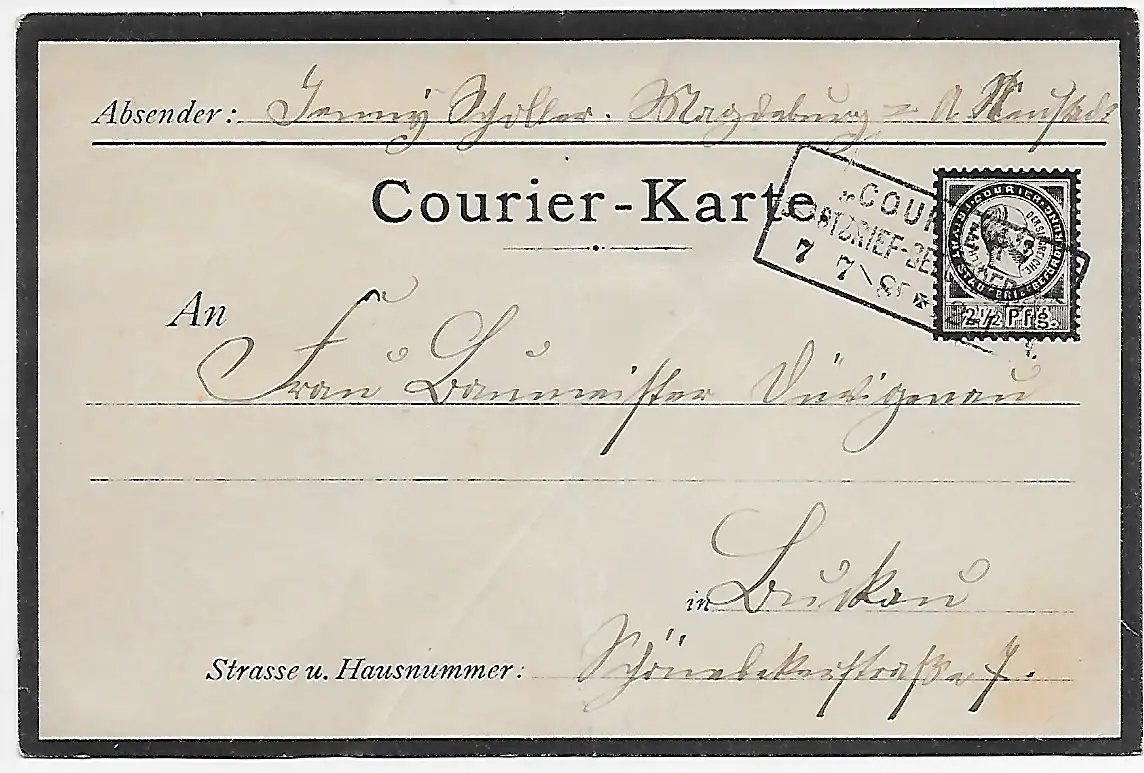 Absender: Jenny Scholler. Magdeburg = A Neustadt
Courier-Karte
"COUR
STBRIEF-BE
7 7 8
2½ Pfg.
An
Frau Baumeister
in Buckau
Strasse u. Hausnummer: Schönebekerstraße 7.